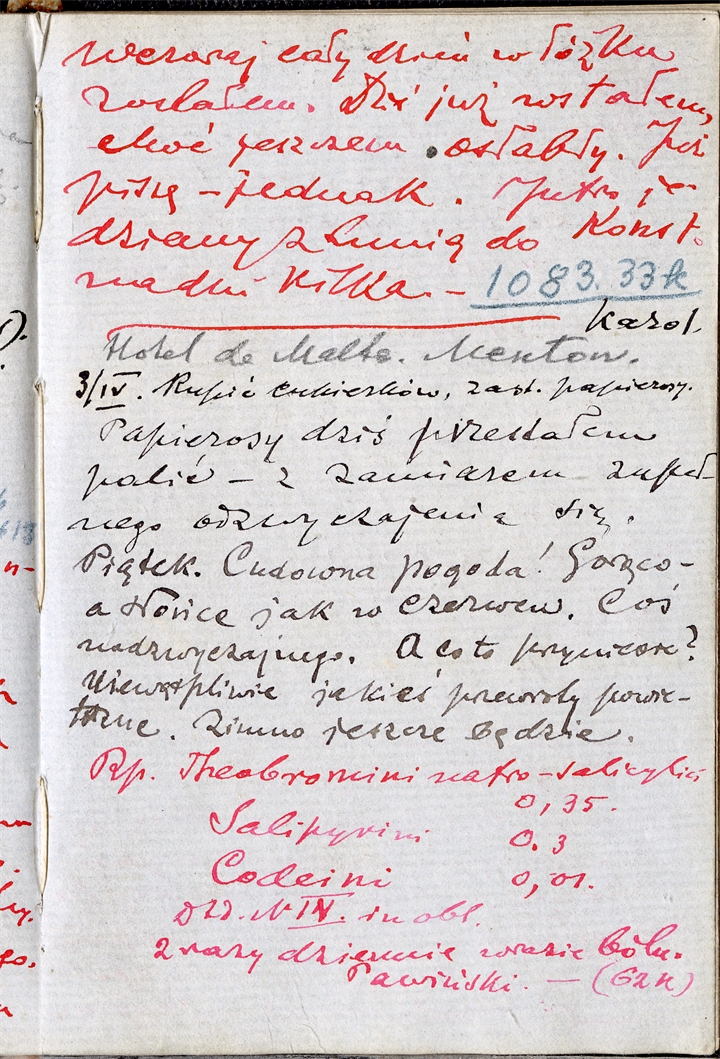 wczoraj cały dzień w łóżku
zostałem. Dziś już wstałem,
choć jeszczem osłabły. Już
piszę – jednak. Jutro je-
dziemy z Lunią do Konst.
na dni kilka. – 1083.33 k
Karol
Hotel de Malte. Menton.
3/IV. Kupić cukierków, zast. papierosy.
Papierosy dziś przestałem
palić – z zamiarem zupeł-
nego odzwyczajenia się.
Piątek. Cudowna pogoda! Gorąco –
a słońce jak w czerwcu. Coś
nadzwyczajnego. A co to przyniesie?
Niewątpliwie jakieś przewroty powie-
trzne. Zimno jeszcze będzie.
Rp. Theobromini natro-salicylici
0,35.
Salipyrini 0.3
Codeini 0,01.
Dtd. N IV. in obl.
2 razy dziennie w razie bólu.
Pawiński. –